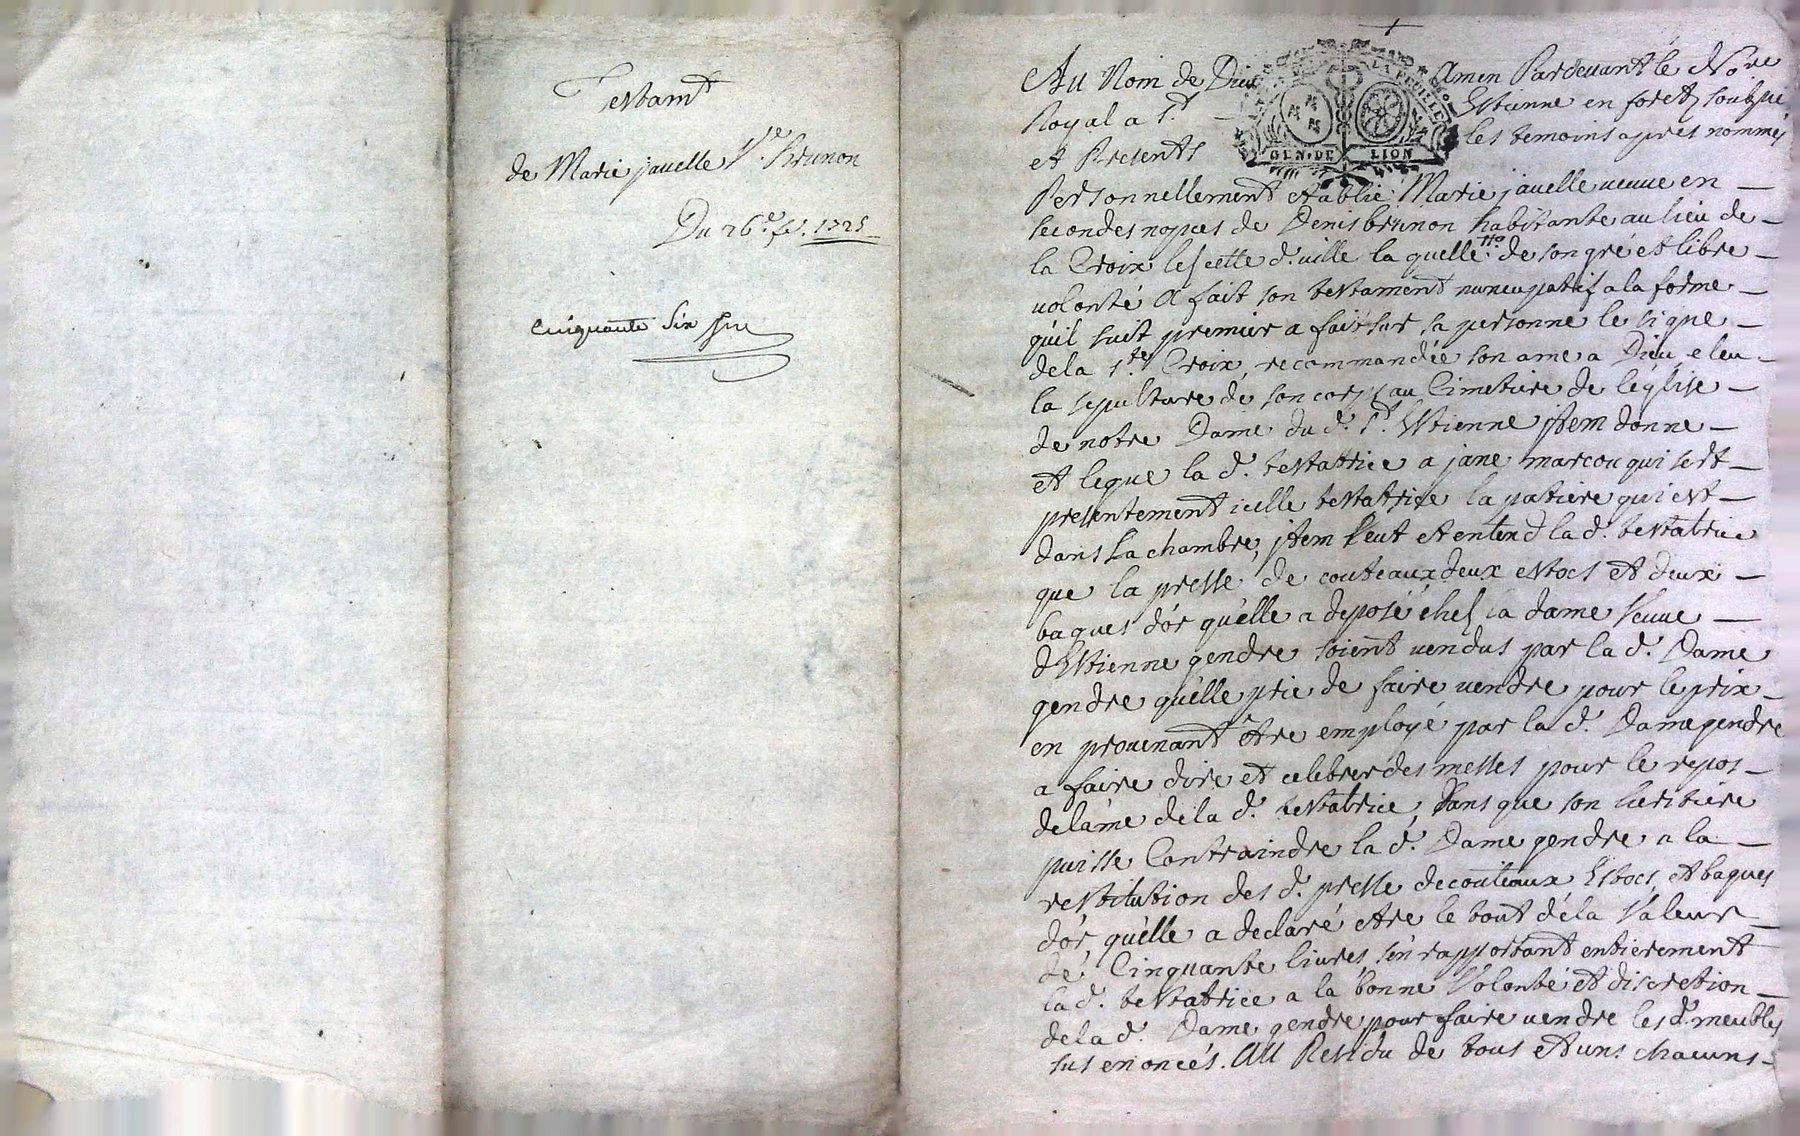 Testamt
de Marie javelle Ve. Brunon
Du 26e. fe. 1725
Cinquante Six
+
Au Nom de Dieu Amen Pardevant le Nore
Royal a St. Estienne en foretz soubzne
et Presents les temoins apres nommés
GEN. DE LION
Personnellement establie Marie javelle veuve en
secondes nopces de Denis brunon habitante au lieu de
la Croix lez cette d. ville la quelle de son gré et libre
volonté a fait son testament nuncupatif a la forme
qu'il suit premier a fait sur sa personne le signe
de la Ste. Croix, recommandée son ame a Dieu eleu
la sepulture de son corps au Cimetiere de leglise
de notre Dame du d. St. Estienne jtem donne
et legue la d. testatrice a jane marcou qui sert
presentement icelle testatrice la patiere qui est
dans sa chambre, jtem veut et entend la d. testatrice
que la presse de couteaux deux estocs et deux
bagues d'or qu'elle a deposé chez la dame veuve
d'Estienne gendre soient vendus par la d. Dame
gendre qu'elle prie de faire vendre pour le prix
en provenant être employé par la d. Dame gendre
a faire dire et celebrer des messes pour le repos
de lame de la d. testatrice, sans que son heritiere
puisse Contraindre la d. Dame gendre a la
restitution des d. presse de couteaux Estocs et bagues
d'or qu'elle a declaré etre le tout de la valeur
de Cinquante livres, s'en rapportant entierement
la d. testatrice a la bonne volonté et discretion
de la d. Dame gendre pour faire vendre les d. meubles
sus enoncés. Au Residu de tous et uns chacuns